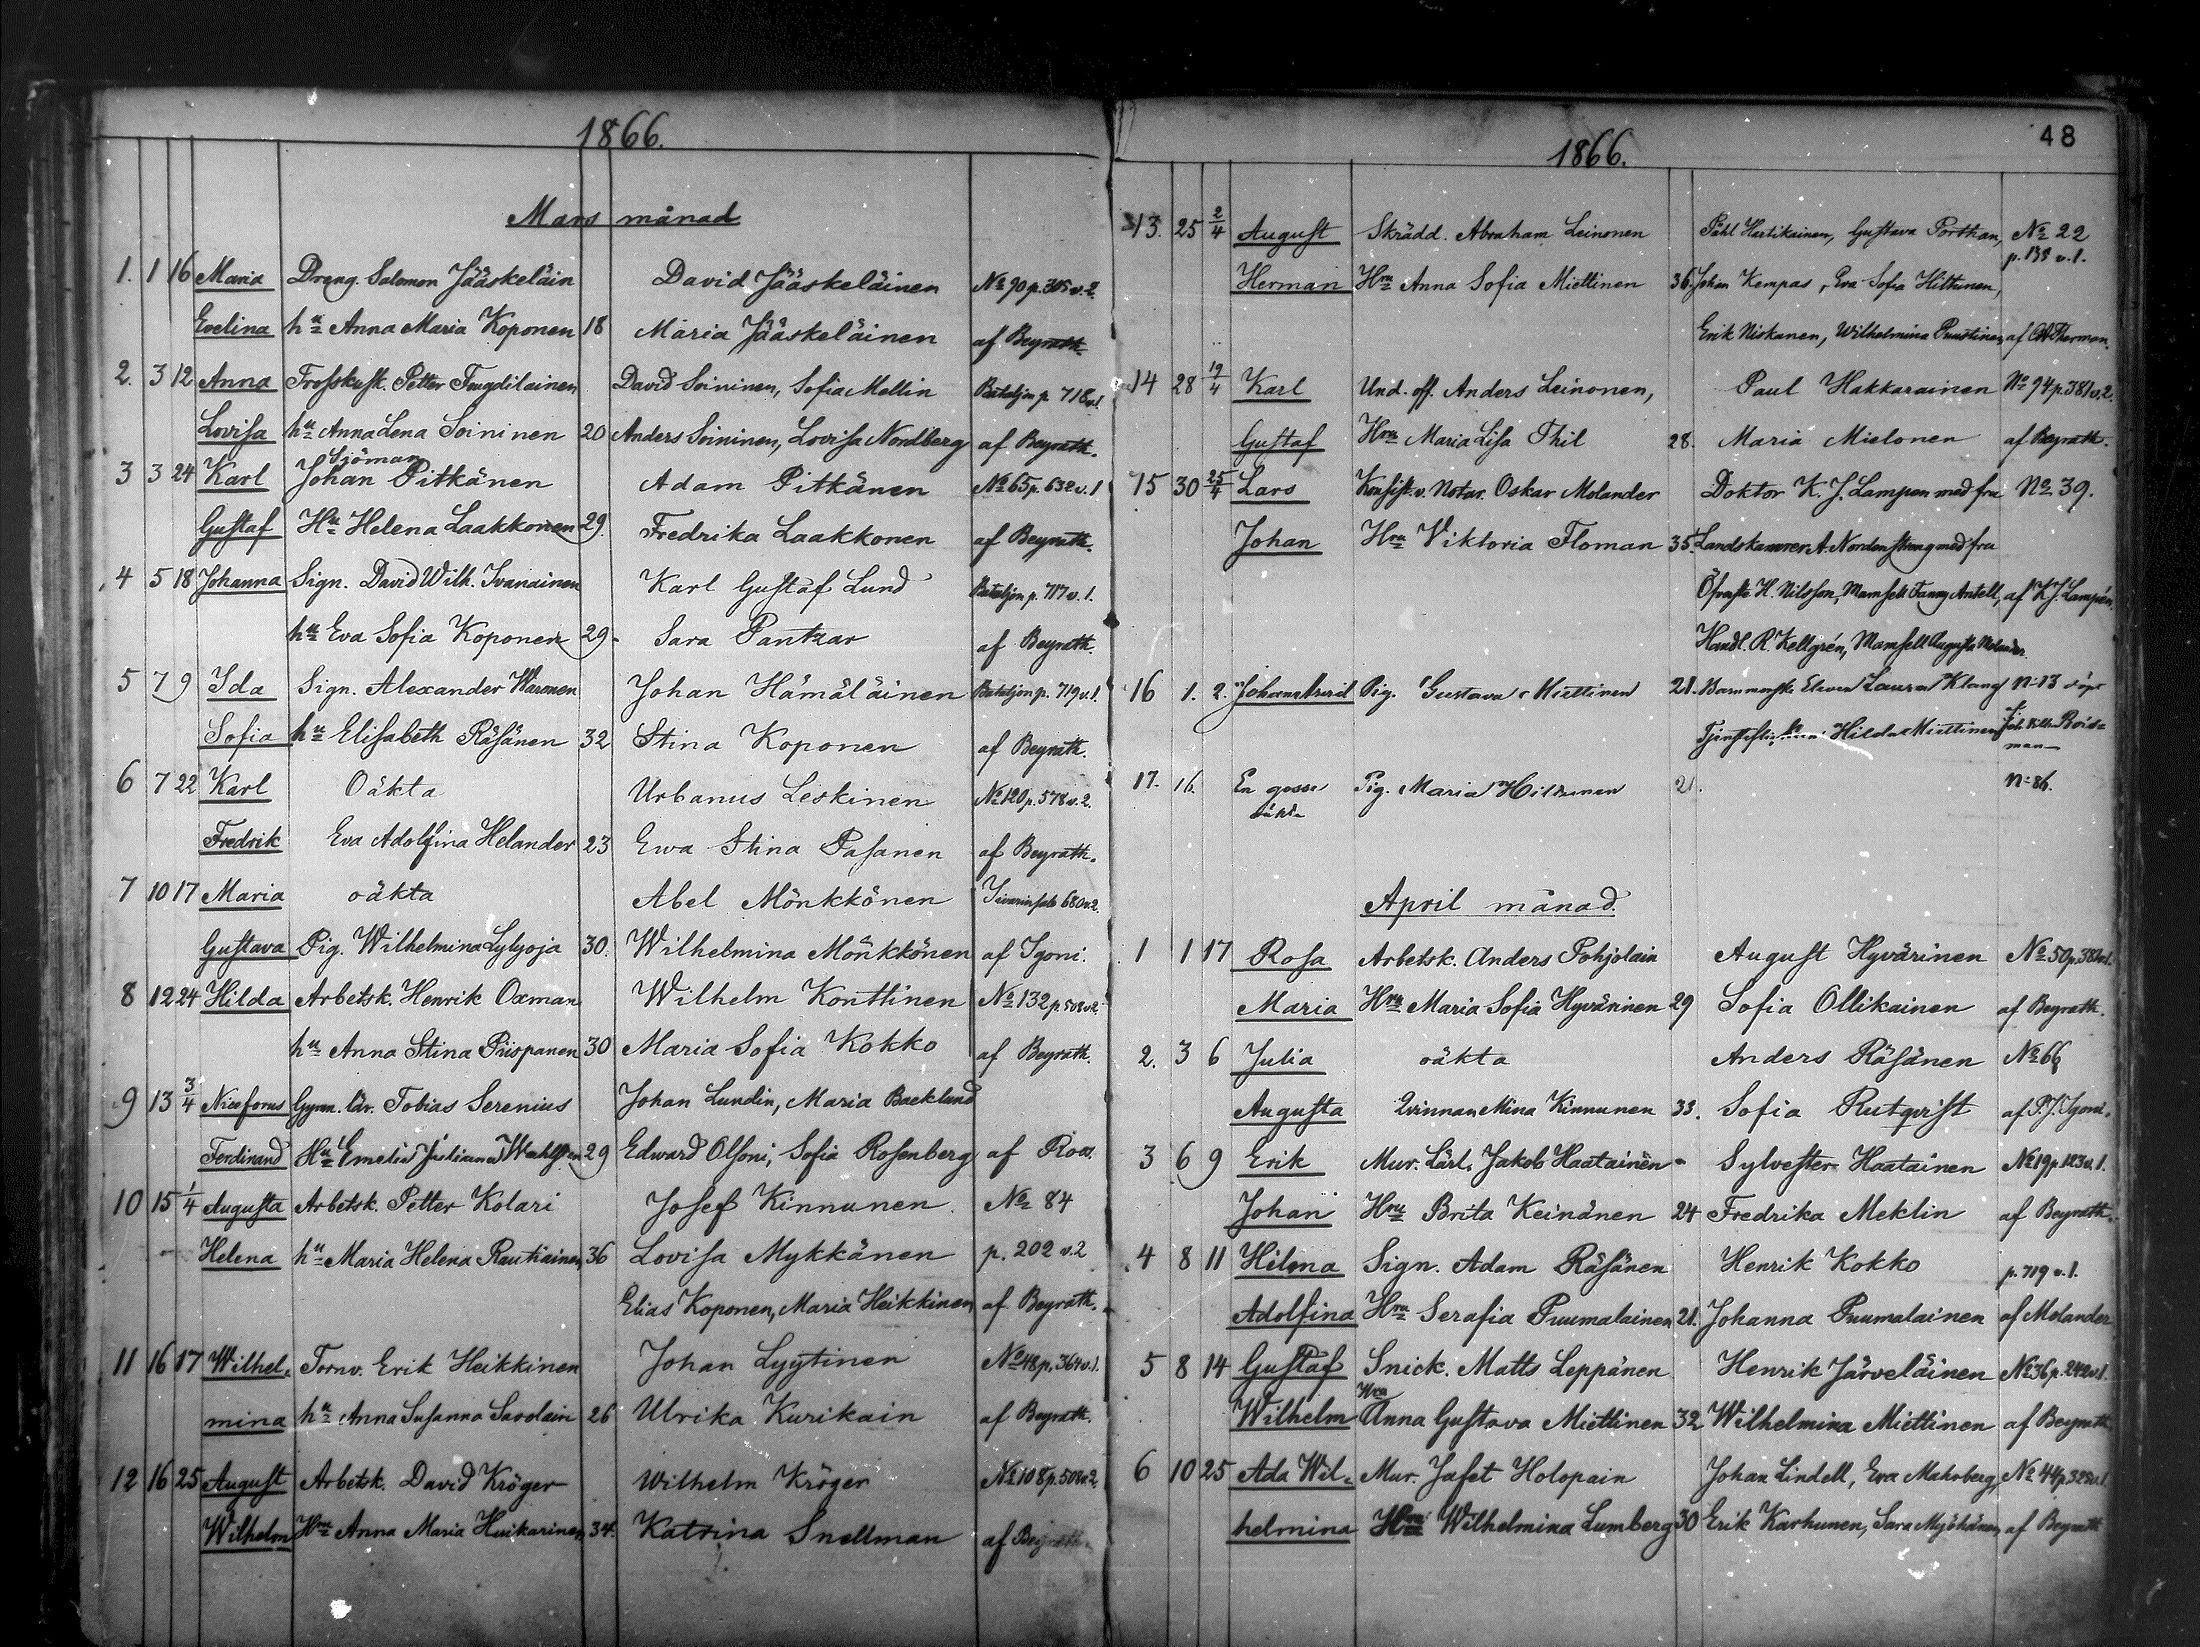 1866.
Mars månad
1. 1 16 Maria Dräng. Salomon Jääskeläin David Jääskeläinen No 90 p. 305 v. 2.
Evelina hu Anna Maria Koponen 18 Maria Jääskeläinen af Beyrath.
2. 3 12 Anna Petter David Soininen, Sofia Mellin Bataljon p. 718 v. 1
Lovisa hu Anna Lena Soininen 20 Anders Soininen, Lovisa Nordberg af Beyrath.
Sjöman
3 3 24 Karl Johan Pitkänen Adam Pitkänen No 65 p. 632 v. 1
Gustaf Hu Helena Laakkonen 29. Fredrika Laakkonen af Beyrath.
4 5 18 Johanna Sign. David Wilh. Ivanainen Karl Gustaf Lund Bataljon p. 717 v. 1.
hu Eva Sofia Koponen 29. Sara Pantzar af Beyrath.
5 7 9 Ida Sign. Alexander Waronen Johan Hämäläinen Bataljon p. 719 v. 1.
Sofia hu Elisabeth Räsänen 32 Stina Koponen af Beyrath.
6 7 22 Karl Oäkta Urbanus Leskinen No 120 p. 578 v. 2.
Fredrik Eva Adolfina Helander 23 Ewa Stina Pasanen af Beyrath.
7 10 17 Maria oäkta Abel Mönkkönen 680 v. 2.
Gustava Pig. Wilhelmina Lylyoja 30. Wilhelmina Mönkkönen af Igoni.
8 12 24 Hilda Arbetsk. Henrik Oxman Wilhelm Konttinen No 132 p. 508 v. 2.
hu Anna Stina Piispanen 30 Maria Sofia Kokko af Beyrath.
9 13 3/4 Niceforus Gymn. lär. Tobias Serenius Johan Lundin, Maria Backlund
Ferdinand Hu Emelia Juliana 29 Edward Olsoni, Sofia Rosenberg af
10 15 1/4 Augusta Arbetsk. Petter Kolari Josef Kinnunen No 84
Helena hu Maria Helena Rautiainen 36 Lovisa Mykkänen p. 202 v. 2
Elias Koponen, Maria Heikkinen af Beyrath.
11 16 17 Wilhel- Tornv. Erik Heikkinen Johan Lyytinen No 48 p. 364 v. 1.
mina hu Anna Susanna Savolain 26 Ulrika Kurikain af Beyrath.
12 16 25 August Arbetsk. David Kröger Wilhelm Kröger No 108 p. 50 v. 2
Wilhelm Hru Anna Maria Huikarinen 34. Katrina Snellman af Beyrath.
48
1866.
13. 25 2/4 August Skrädd. Abraham Leinonen Påhl Hartikainen, Gustava Porthan, No 22
p. 138 v. 1.
Herman Hru Anna Sofia Miettinen 36. Johan Kempas, Eva Sofia Hiltunen,
Erik Niskanen, Wilhelmina Puustinen af
14 28 19/4 Karl Und. off. Anders Leinonen, Paul Hakkarainen No 94 p. 381 v. 2.
Gustaf Hru Maria Lisa Thil 28. Maria Mielonen af Beyrath.
15 30 25/4 Lars Konsist. v. Notar. Oskar Molander Doktor K. J. Lampen med fru No 39.
Johan Hru Viktoria Floman 35. A. Nordenstreng med fru
H. Nilsson, Mamsell Fanny Antell, af K. J. Lampén.
Handl. R. Kellgrén, Mamsell Augusta Molander
16 1. 2. Johan Pig. Gustava Miettinen 21. Laura Klang No 13
Hilda Miettinen
17. 16. En gosse Pig. Maria Hiltunen 21. No 86.
oäkta
April månad.
1 1 17 Rosa Arbetsk. Anders Pohjolain August Hyvärinen No 50 p. 380 v. 1.
Maria Hru Maria Sofia Hyvärinen 29 Sofia Ollikainen af Beyrath.
2. 3 6 Julia oäkta Anders Räsänen No 66
Augusta Qvinnan Mina Kinnunen 33. Sofia Rutqvist af P. J. Igoni.
3 6 9 Erik Mur. Lärl. Jakob Haatainen Sylvester Haatainen No 19 p. 113 v. 1.
Johan Hru Brita Keinänen 24 Fredrika Meklin af Beyrath.
4 8 11 Hilma Sign. Adam Räsänen Henrik Kokko p. 719 v. 1.
Adolfina Hru Serafia Puumalainen 21. Johanna Puumalainen af Molander
5 8 14 Gustaf Snick. Matts Leppänen Henrik Järveläinen No 36 p. 242 v. 1.
Hru
Wilhelm Anna Gustava Miettinen 32 Wilhelmina Miettinen af Beyrath
6 10 25 Ada Wil- Mur. Jafet Holopain Johan Lindell, Eva Mahrberg, No 44 p. 328 v. 1.
helmina Hru Wilhelmina Lumberg 30 Erik Karhunen, Sara Myöhänen, af Beyrath